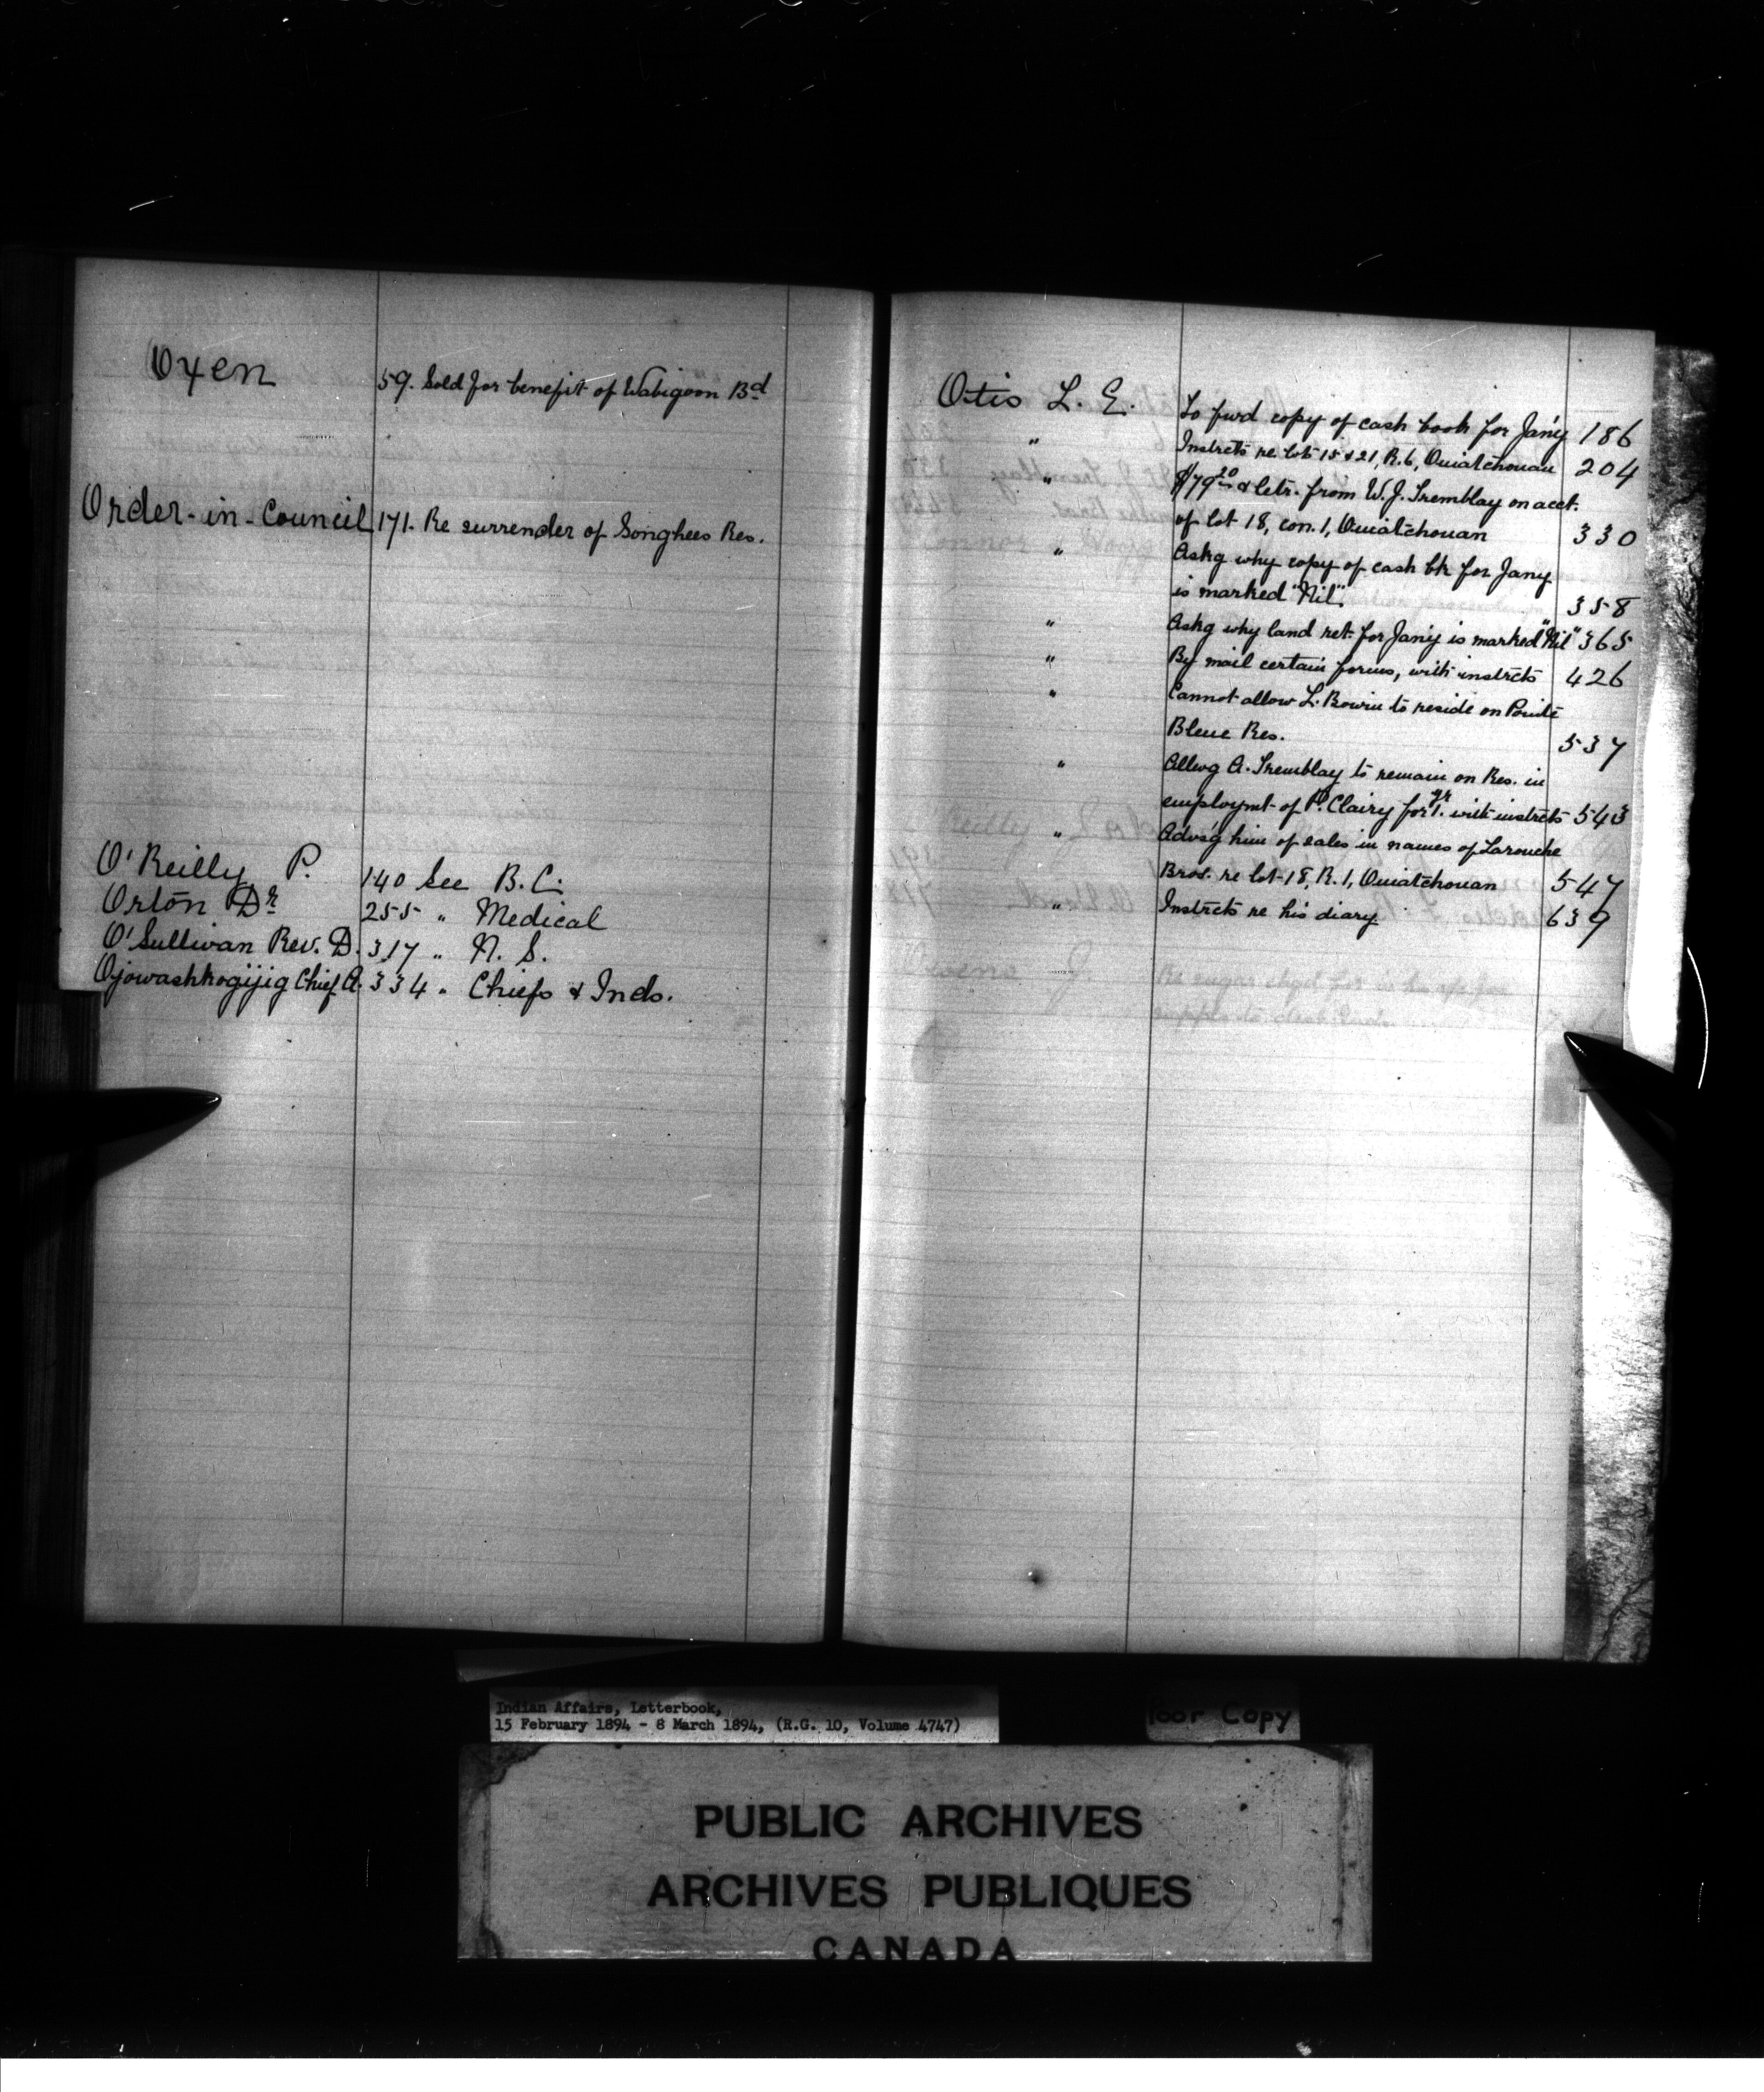 Oxen 59. Sold for benefit of Wabigoon Bd
Order-in-Council 171. Re surrender of Songhees Res.
O'Reilly P. 140 See B.C.
Orton Dr 255 " Medical
O'Sullivan Rev. D. 317 " N. S.
Ojowashkogijig Chief A. 334 " Chiefs & Inds.
Otis L. E. To fwd copy of cash book for Jan'y 186
" Instrcts re lots 15 & 21, R. 6, Ouiatchouan 204
" $79.20 & letr. from W. J. Tremblay on acct.
of lot 18, con. 1, Ouiatchouan 330
" Askg why copy of cash bk for Jany
is marked "Nil" 358
" Askg why land ret. for Jan'y is marked "Nil" 365
" By mail certain forms, with instrcts 426
" Cannot allow L. Bowin to reside on Pointe
Bleue Res. 537
" Allwg A. Tremblay to remain on Res. in
employmt of P. Clairy for 1 yr. with instrcts 543
" Advs'g him of sales in names of Larouche
Bros. re lot 18, R. 1, Ouiatchouan 547
" Instrcts re his diary 639
Indian Affairs, Letterbook,
15 February 1894 - 8 March 1894, (R.G. 10, Volume 4747)
Poor Copy
PUBLIC ARCHIVES
ARCHIVES PUBLIQUES
CANADA